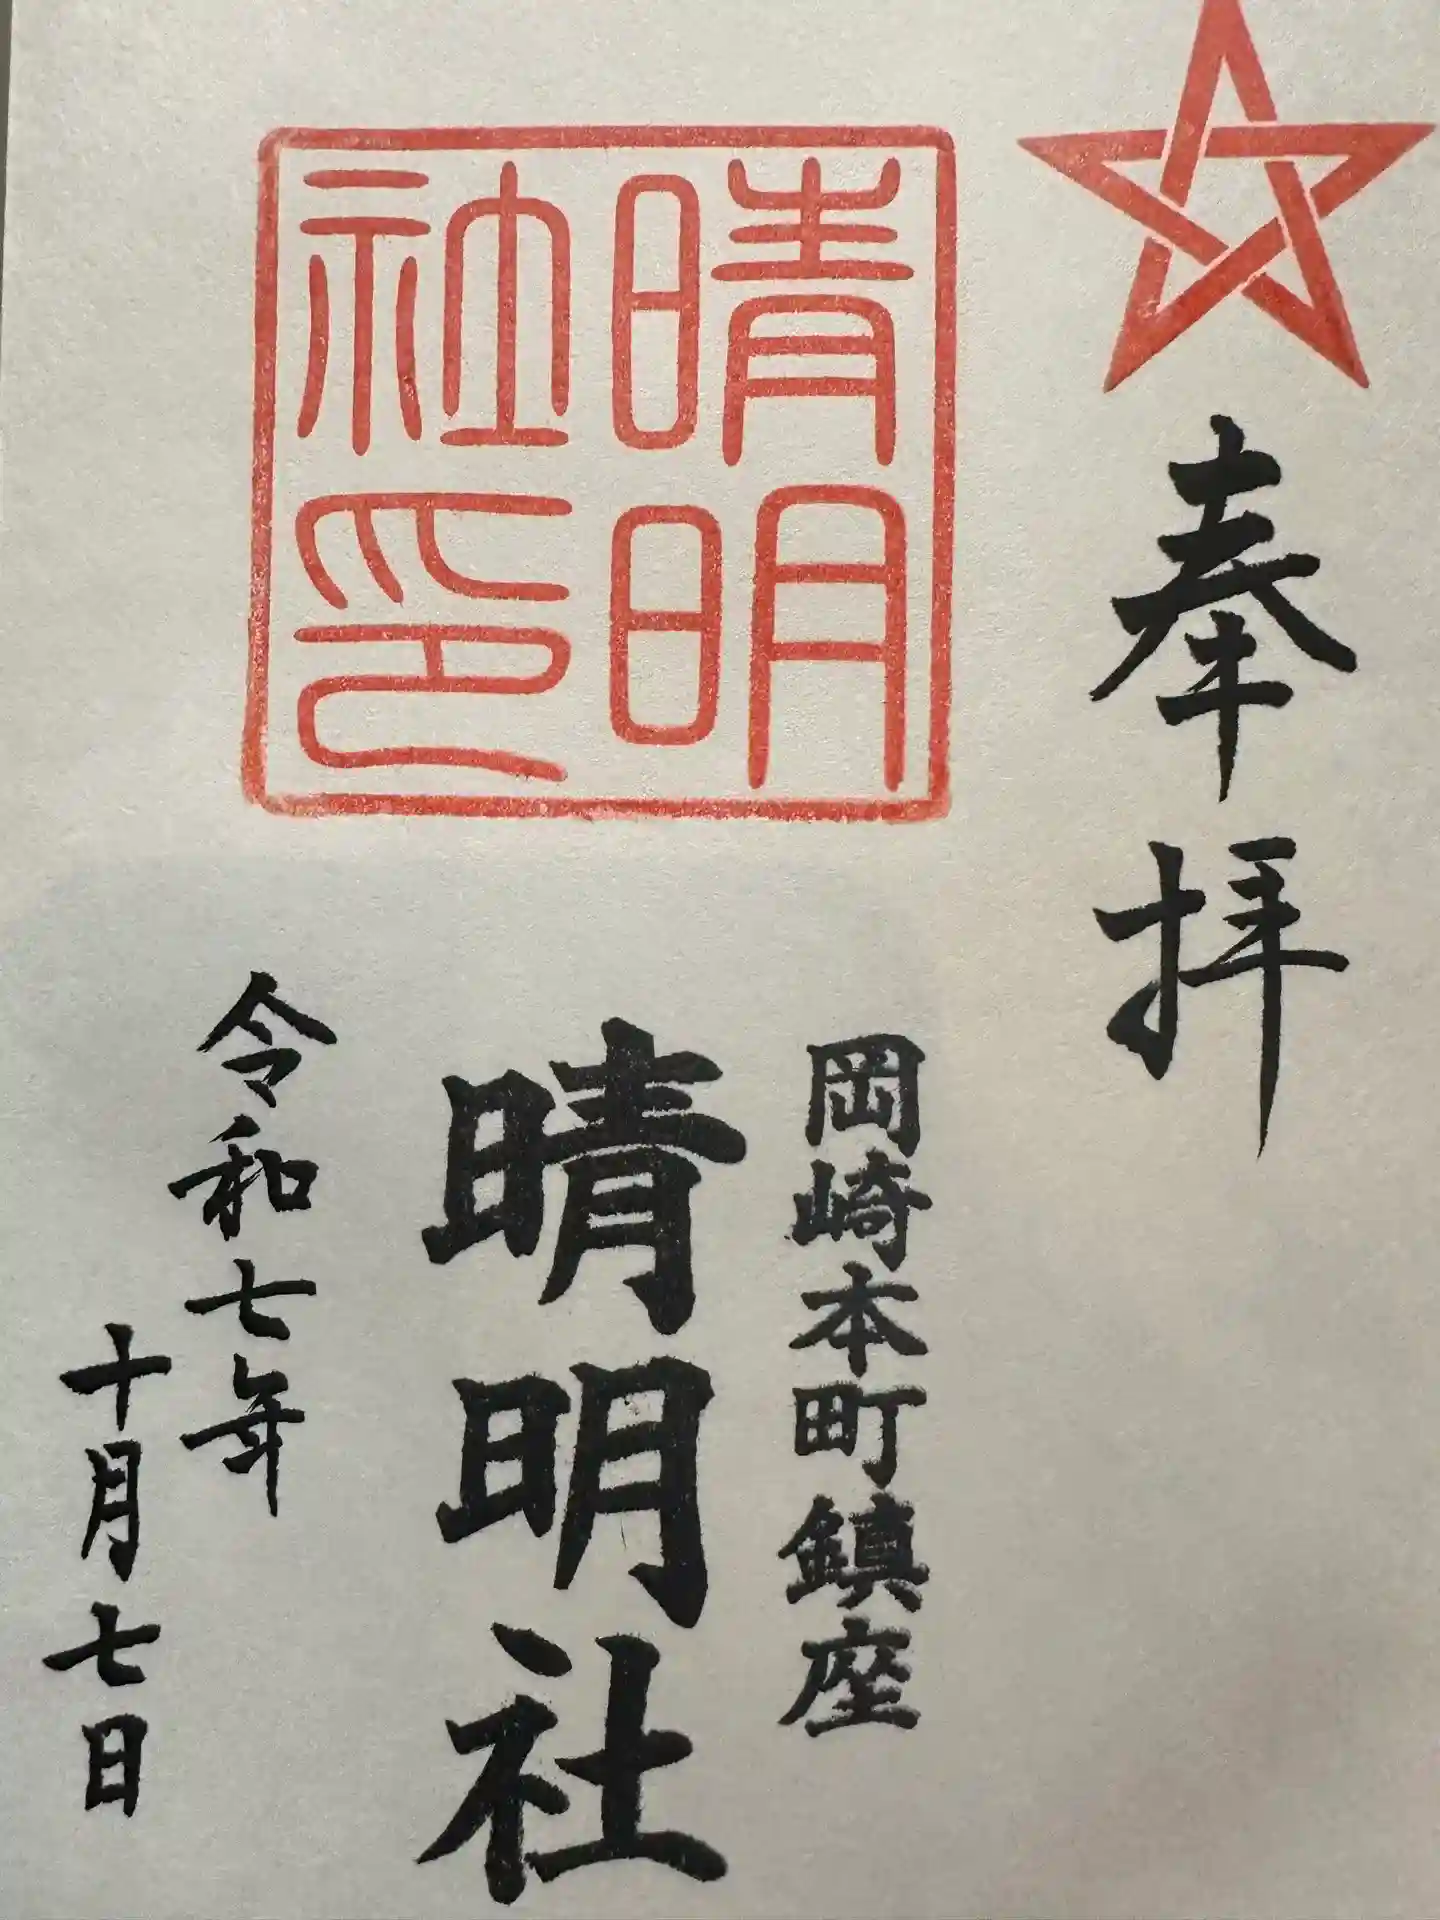 奉拝
晴明
社印
岡崎本町鎮座
晴明社
令和七年
十月七日